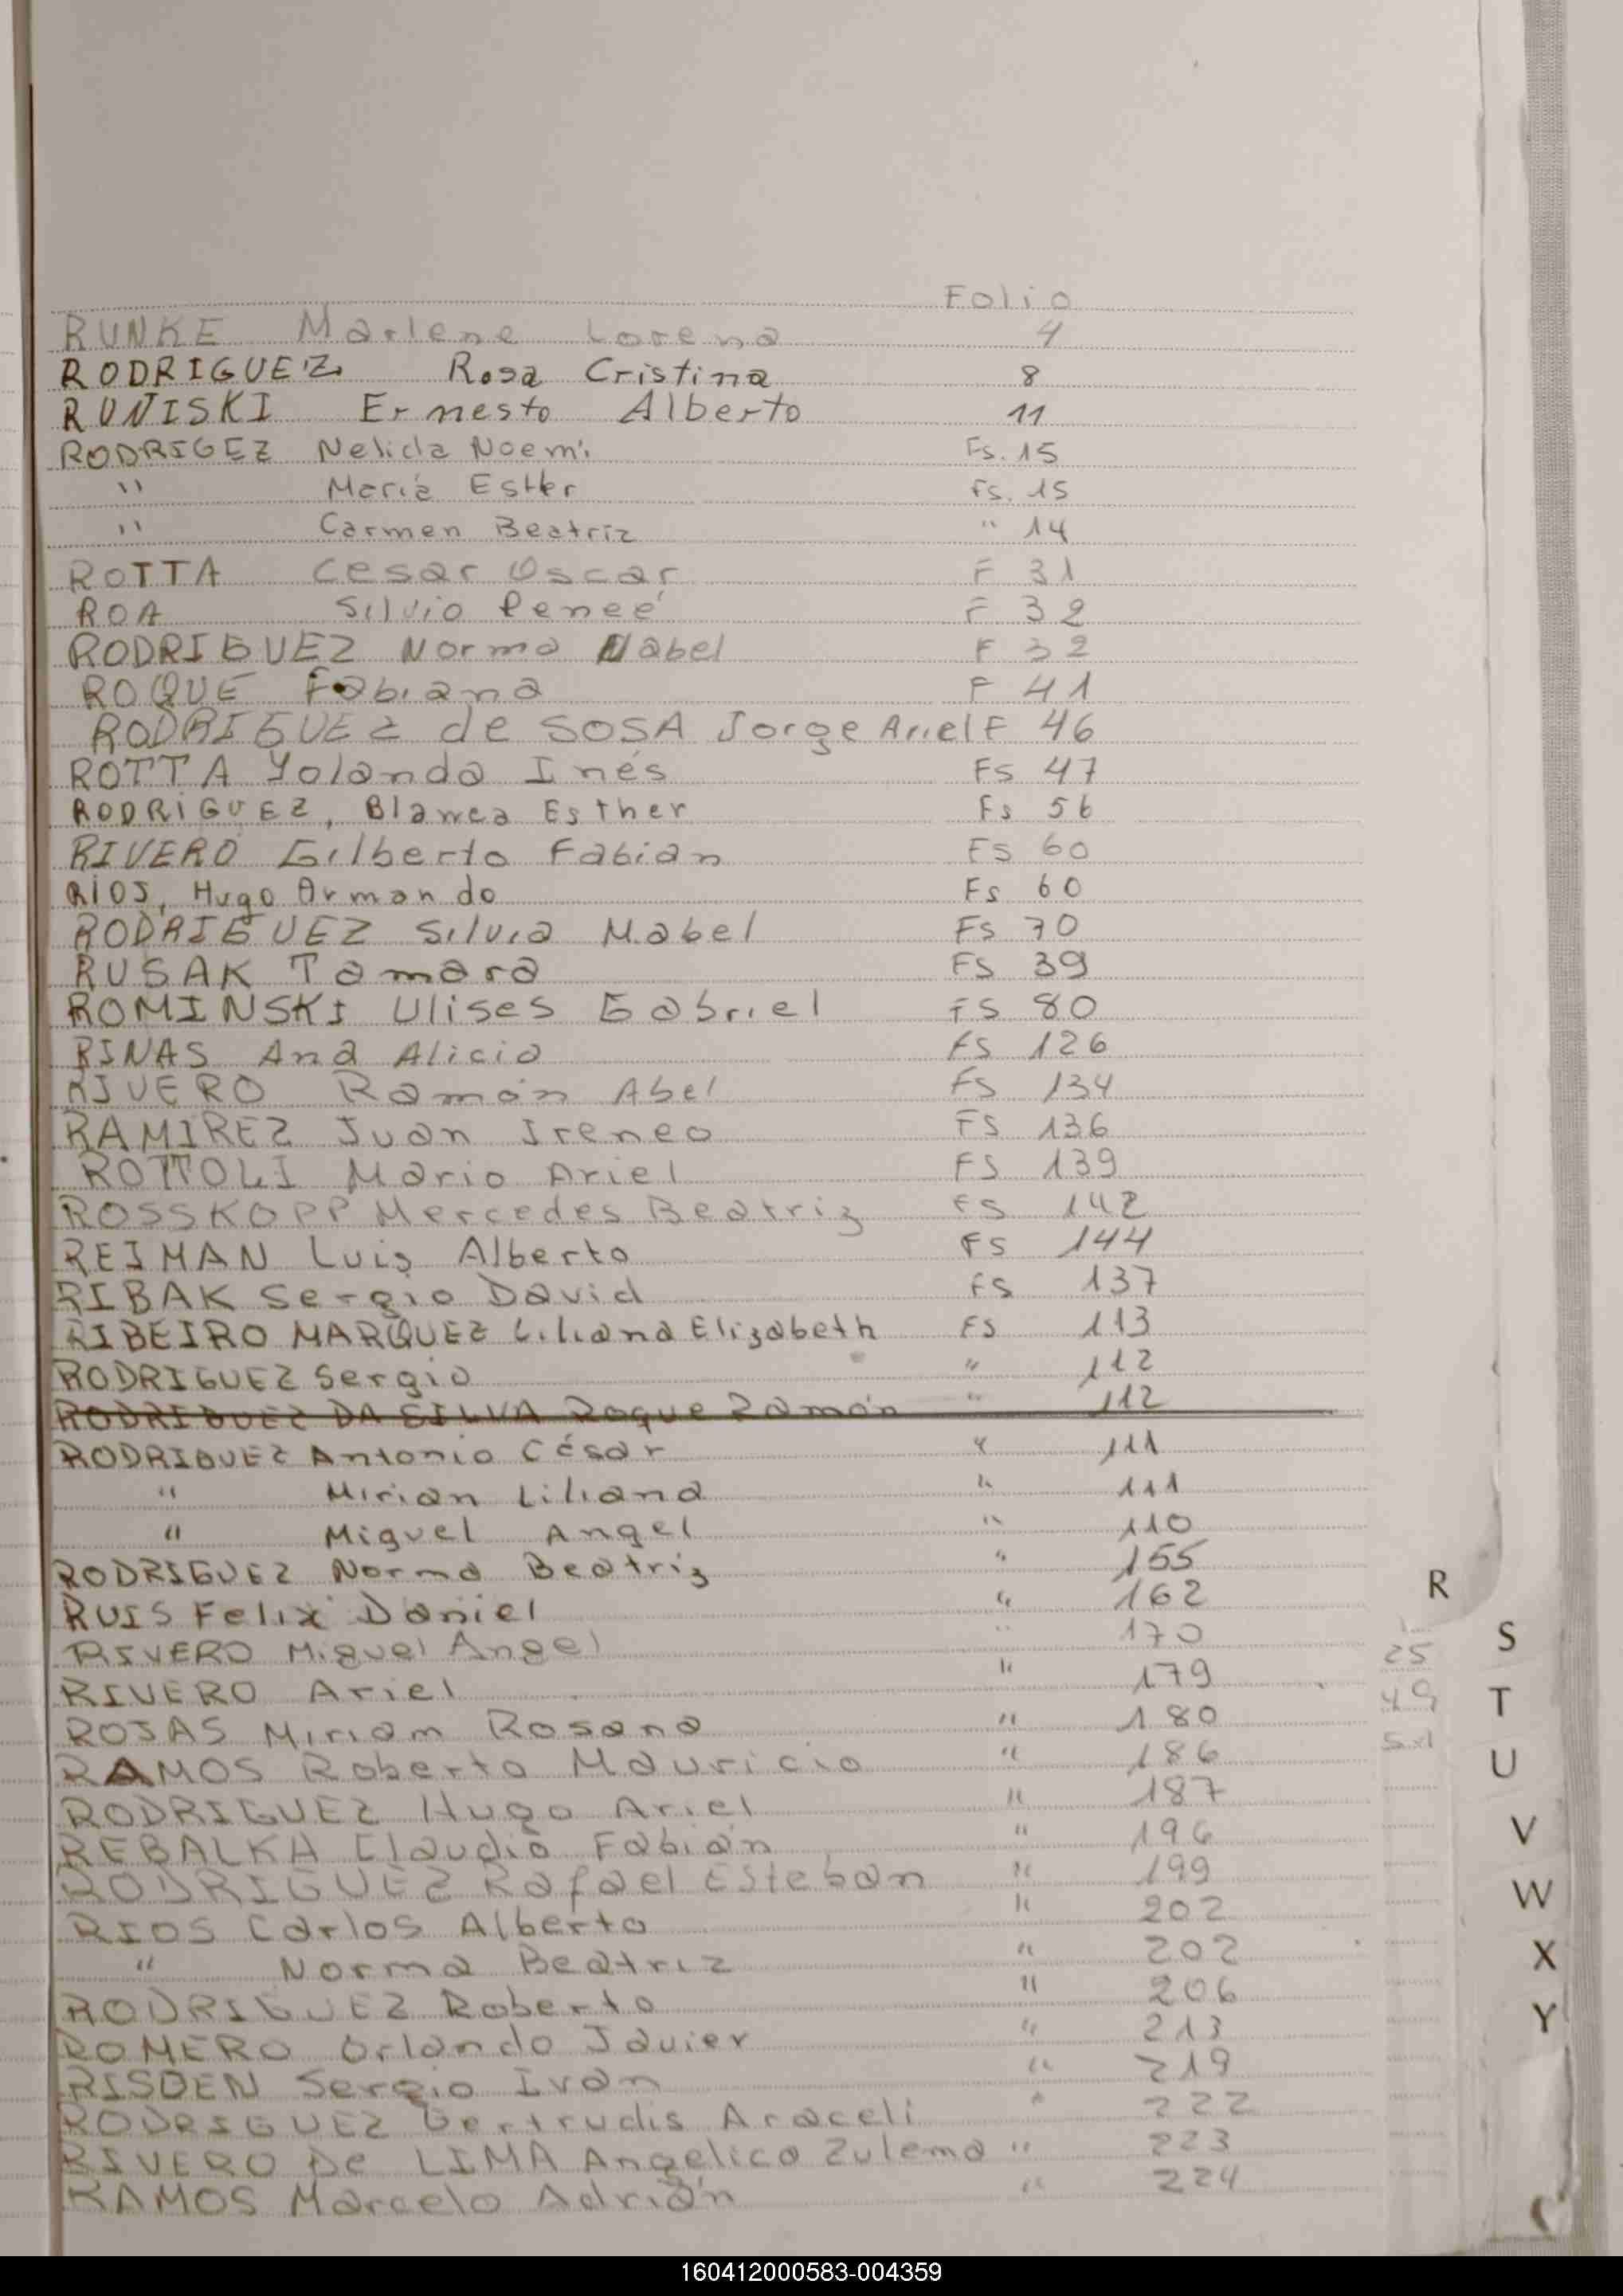 Folio
RUNKE Marlene Lorena 4
RODRIGUEZ Rosa Cristina 8
RUNISKI Ernesto Alberto 11
RODRIGEZ Nelida Noemí Fs. 15
" María Esther Fs. 15
" Carmen Beatriz " 14
ROTTA Cesar Oscar F 31
ROA Silvio Reneé F 32
RODRIGUEZ Norma Nabel F 32
ROQUE Fabiana F 41
RODRIGUEZ de SOSA Jorge Ariel F 46
ROTTA Yolanda Inés Fs 47
RODRIGUEZ, Blanca Esther Fs 56
RIVERO Gilberto Fabian Fs 60
RIOS, Hugo Armando Fs 60
RODRIGUEZ Silvia Mabel Fs 70
RUSAK Tamara FS 39
ROMINSKI Ulises Gabriel FS 80
RINAS Ana Alicia FS 126
RIVERO Ramón Abel FS 134
RAMIREZ Juan Ireneo FS 136
ROTTOLI Mario Ariel FS 139
ROSSKOPP Mercedes Beatriz FS 142
REIMAN Luis Alberto FS 144
RIBAK Sergio David FS 137
RIBEIRO MARQUEZ Liliana Elizabeth FS 113
RODRIGUEZ Sergio " 112
RODRIGUEZ DA SILVA Roque Ramón " 112
RODRIGUEZ Antonio César " 111
" Mirian Liliana " 111
" Miguel Angel " 110
RODRIGUEZ Norma Beatriz " 155
RUIS Felix Daniel " 162
RIVERO Miguel Angel " 170
RIVERO Ariel " 179
ROJAS Miriam Rosana " 180
RAMOS Roberto Mauricio " 186
RODRIGUEZ Hugo Ariel " 187
REBALKA Claudio Fabián " 196
RODRIGUEZ Rafael Esteban " 199
RIOS Carlos Alberto " 202
" Norma Beatriz " 202
RODRIGUEZ Roberto " 206
ROMERO Orlando Javier " 213
RISDEN Sergio Ivan " 219
RODRIGUEZ Gertrudis Araceli " 222
RIVERO De LIMA Angelica Zulema " 223
RAMOS Marcelo Adrián " 224
R
S
25
T
49
U
V
W
X
Y
160412000583-004359